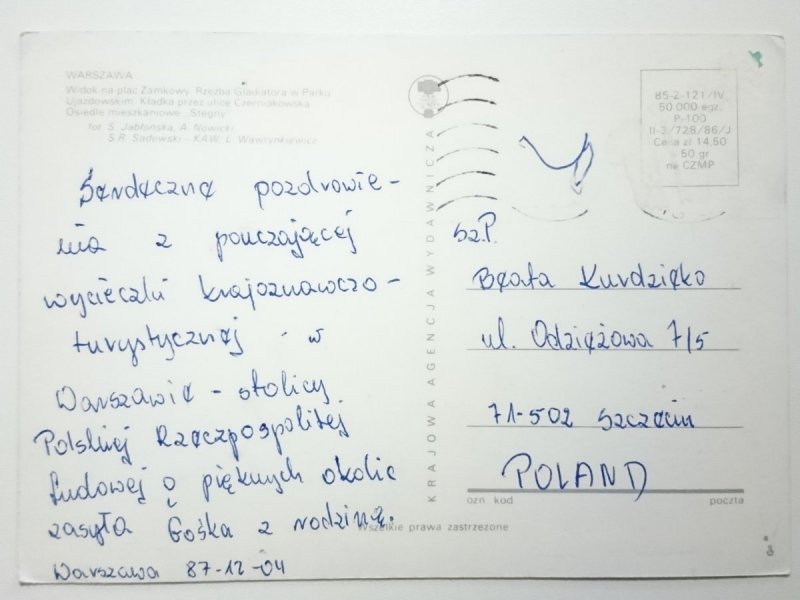 WARSZAWA
Widok na plac Zamkowy. Rzeźba Gladiatora w Parku
Ujazdowskim. Kładka przez ulicę Czerniakowską.
Osiedle mieszkaniowe „Stegny"
fot. S. Jabłońska, A. Nowicki,
S.R. Sadowski - KAW, L. Wawrynkiewicz
Serdeczne pozdrowie-
nia z pouczającej
wycieczki krajoznawczo-
turystycznej - w
Warszawie - stolicy
Polskiej Rzeczpospolitej
Ludowej o pięknych okolic
zasyła Gośka z rodziną.
Warszawa 87-12-04
KRAJOWA AGENCJA WYDAWNICZA
85-2-121/IV
50 000 egz.
P-100
II-3/728/86/J
Cena zł 14,50
50 gr
na CZMP
Sz.P.
Beata Kurdzięko
ul. Odzieżowa 7/5
71-502 Szczecin
POLAND
ozn kod poczta
Wszelkie prawa zastrzeżone